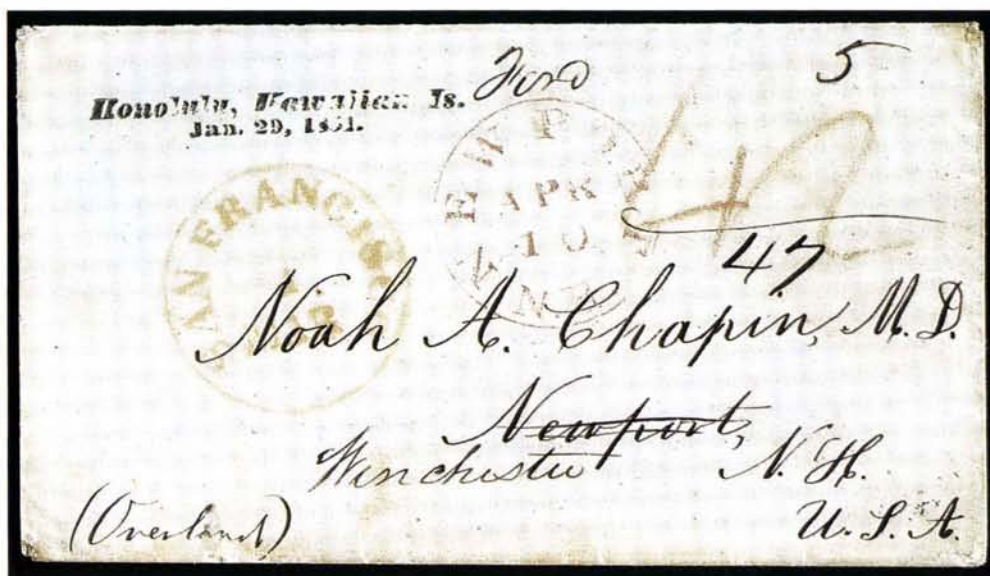 Honolulu, Hawaiian Is.
Jan. 29, 1851.
Ford
5
42
47
SAN FRANCIS
NEWPORT
APR
10
N.H.
Noah A. Chapin, M.D.
Newport,
Winchester N.H.
(Overland)
U.S.A.